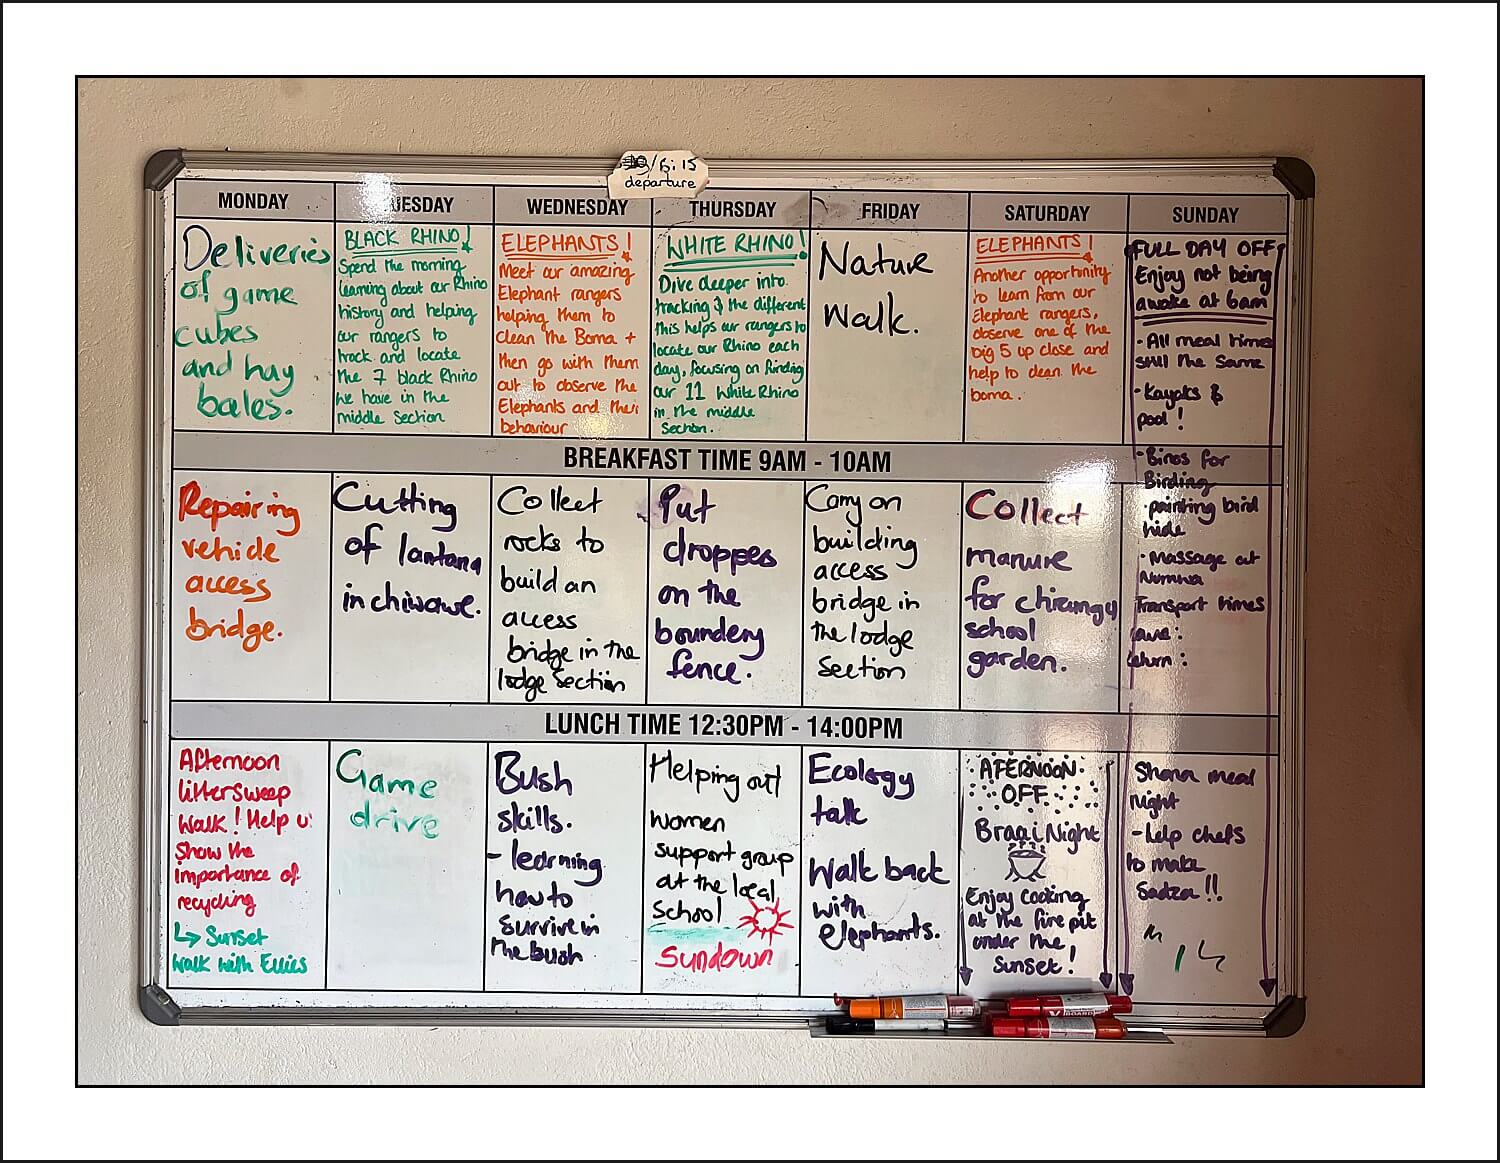 /6:15
departure
MONDAY
TUESDAY
WEDNESDAY
THURSDAY
FRIDAY
SATURDAY
SUNDAY
Deliveries
of game
cubes
and hay
bales.
BLACK RHINO!
Spend the morning
learning about our Rhino
history and helping
our rangers to
track and locate
the 7 black Rhino
we have in the
middle Section
ELEPHANTS!
Meet our amazing
Elephant rangers
helping them to
clean the Boma +
then go with them
out to observe the
Elephants and their
behaviour
WHITE RHINO!
Dive deeper into
tracking & the different
this helps our rangers to
locate our Rhino each
day, focusing on finding
our 11 White Rhino
in the middle
Section.
Nature
Walk.
ELEPHANTS!
Another opportunity
to learn from our
Elephant rangers,
observe one of the
big 5 up close and
help to clean the
boma.
FULL DAY OFF
Enjoy not being
awake at 6am
- All meal times
still the same
- Kayaks &
pool!
- Binos for
Birding
- painting bird
hide
- Massage at
Numwa
Transport times
eave:
eturn:
BREAKFAST TIME 9AM - 10AM
Repairing
vehicle
access
bridge.
Cutting
of lantana
in chiwawe.
Collect
rocks to
build an
access
bridge in the
lodge Section
Put
droppes
on the
boundery
fence.
Carry on
building
access
bridge in
the lodge
Section
Collect
manure
for chizungu
school
garden.
LUNCH TIME 12:30PM - 14:00PM
Afternoon
littersweep
walk! Help us
Show the
importance of
recycling
↳ Sunset
walk with Ellies
Game
drive
Bush
skills.
- learning
how to
survive in
the bush
Helping out
women
support group
at the local
School
Sundown
Ecology
talk
Walk back
with
elephants.
AFERNOON
OFF
Braai Night
Enjoy cooking
at the fire pit
under the
Sunset!
Shona meal
night
- help chefs
to make
Sadza!!